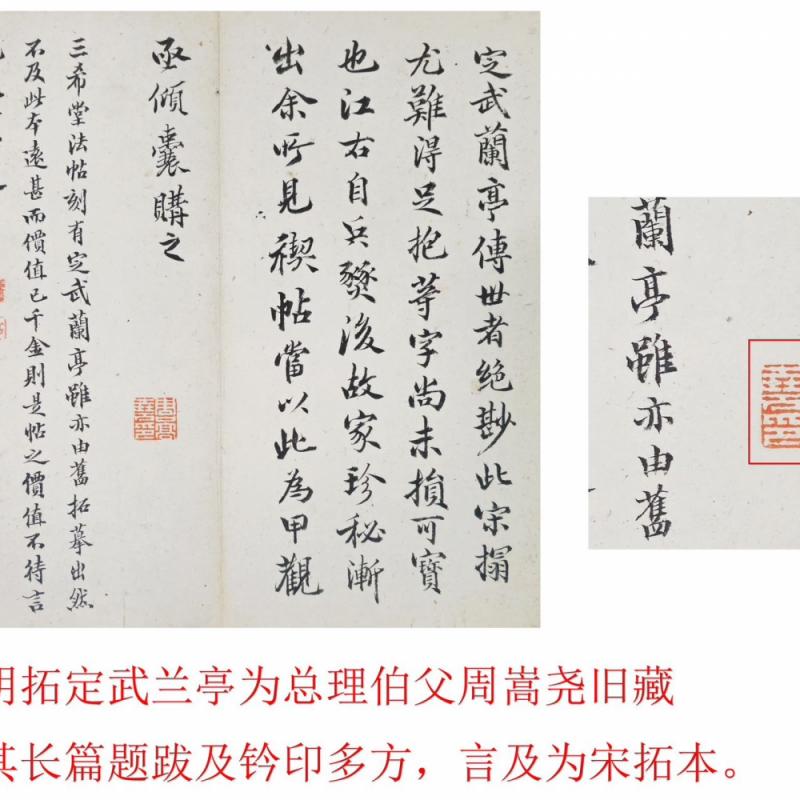 定武蘭亭傳世者絶尠此宋搨
尤難得足抱等字尚未損可寶
也江右自兵燹後故家珍秘漸
出余所見禊帖當以此為甲觀
亟傾囊購之
三希堂法帖刻有定武蘭亭雖亦由舊拓摹出然
不及此本遠甚而價值已千金則是帖之價值不待言
蘭亭雖亦由舊
明拓定武兰亭为总理伯父周嵩尧旧藏
其长篇题跋及钤印多方，言及为宋拓本。